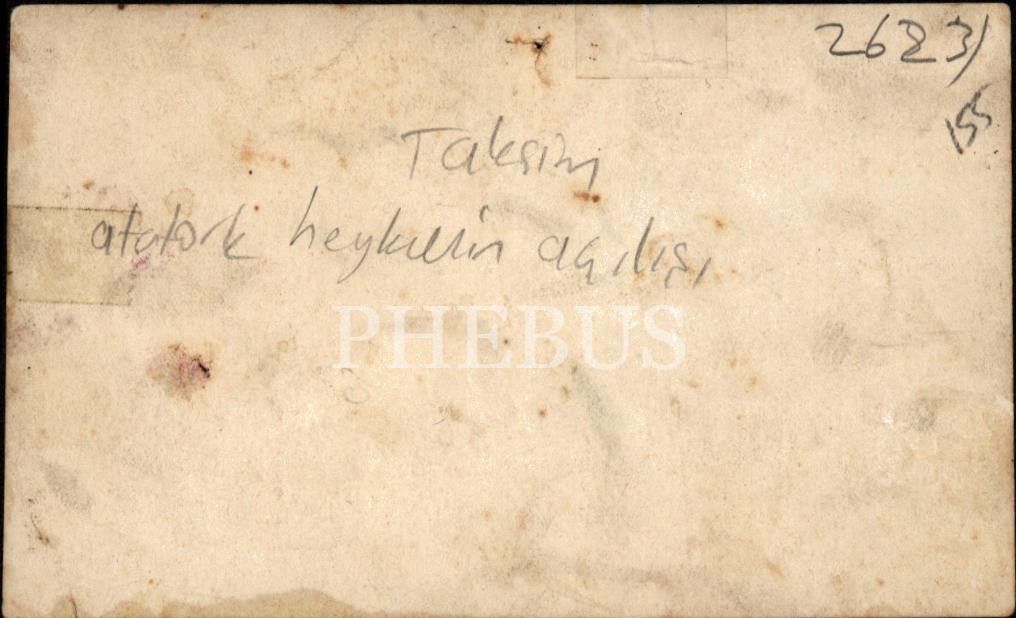 2623/
155
Taksim
atatürk heykelin açılışı
PHEBUS